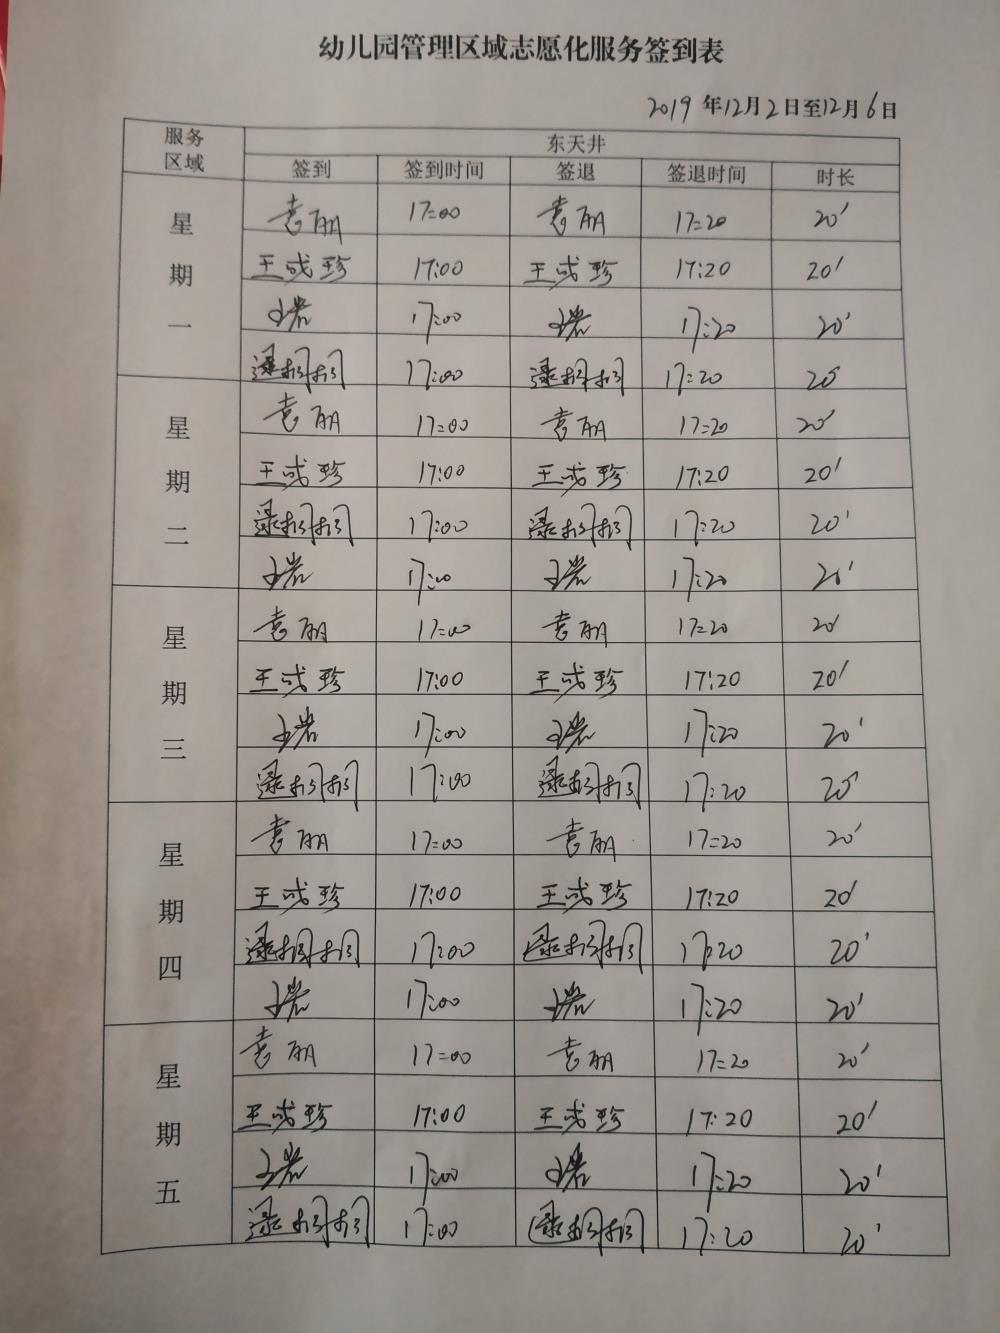 幼儿园管理区域志愿化服务签到表
2019年12月2日至12月6日
服务区域 东天井
签到 签到时间 签退 签退时间 时长
星期一
袁丽 17:00 袁丽 17:20 20'
王成珍 17:00 王成珍 17:20 20'
17:00 17:20 20'
17:00 17:20 20'
星期二
袁丽 17:00 袁丽 17:20 20'
王成珍 17:00 王成珍 17:20 20'
17:00 17:20 20'
17:00 17:20 20'
星期三
袁丽 17:00 袁丽 17:20 20'
王成珍 17:00 王成珍 17:20 20'
17:00 17:20 20'
17:00 17:20 20'
星期四
袁丽 17:00 袁丽 17:20 20'
王成珍 17:00 王成珍 17:20 20'
17:00 17:20 20'
17:00 17:20 20'
星期五
袁丽 17:00 袁丽 17:20 20'
王成珍 17:00 王成珍 17:20 20'
17:00 17:20 20'
17:00 17:20 20'